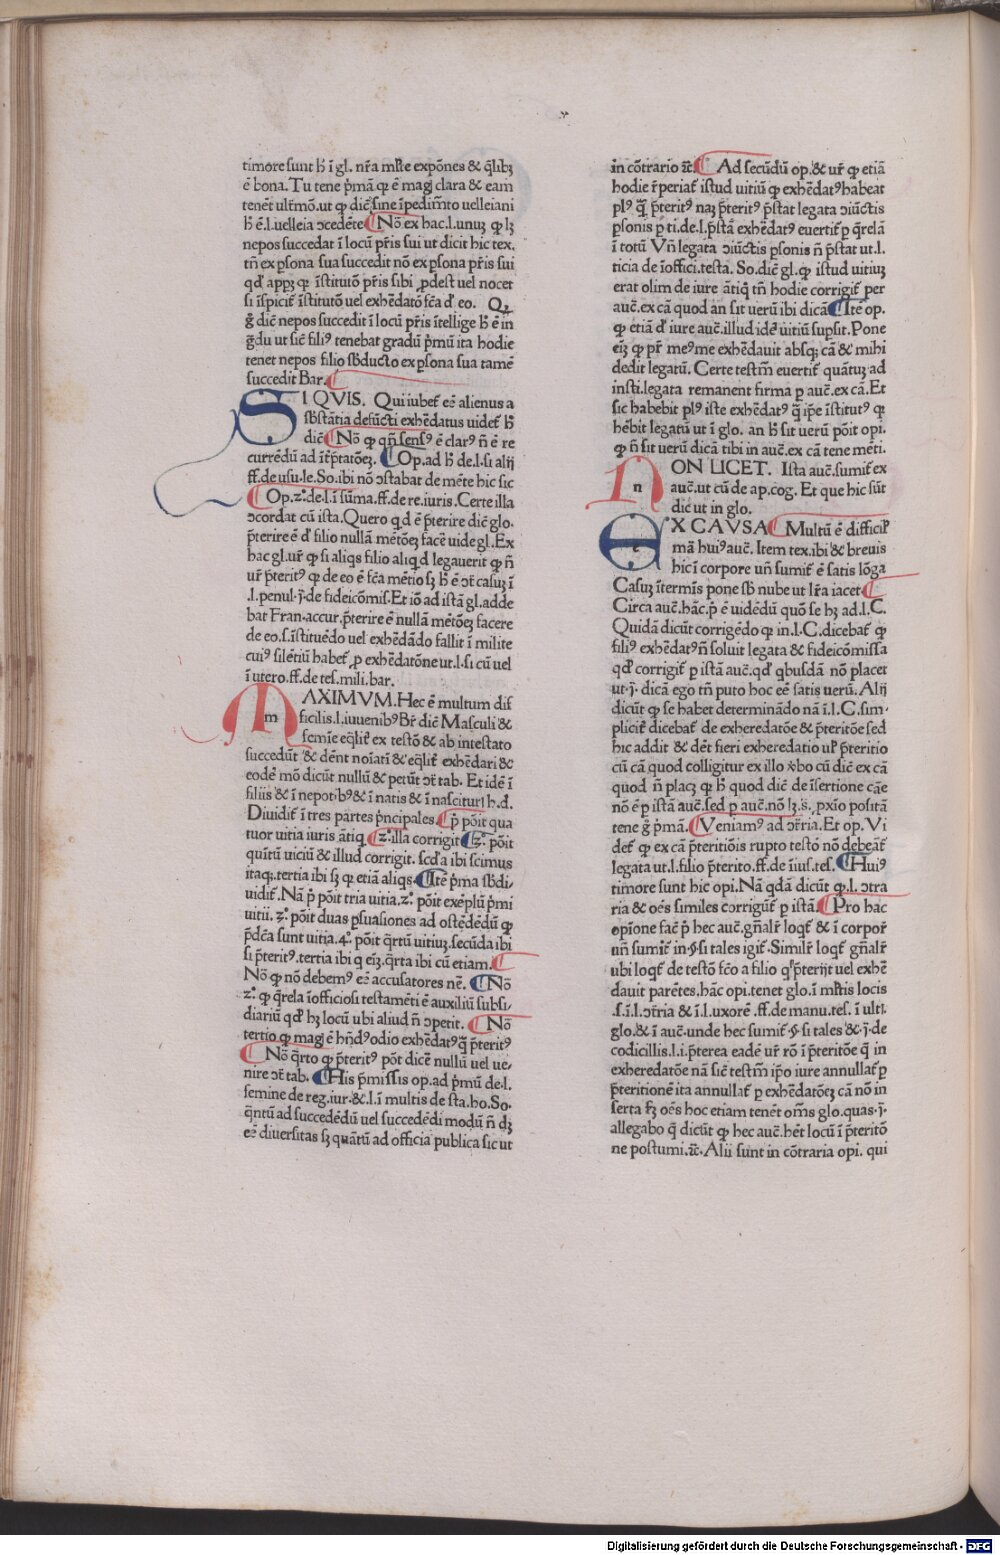 timore sunt h̄ ī gl. nr̄a mſte expōnes & q̄libꝫ
ē bona. Tu tene p̄mā qꝫ ē magꝭ clara & eam
tenēt ultīmō. ut ꝙ dic̄ sine īpedim̄to uelleiani
h̄ ē .l. uelleia ꝯcedēte ¶ Nō ex hac .l. unuꝫ ꝙ lꝫ
nepos succedat ī locū pr̄is sui ut dicit hic tex.
tn̄ ex ꝑsona sua succedit nō ex ꝑsona pr̄is sui
qd̄ appꝫ qꝫ īstitutō pr̄is sibi ꝓdest uel nocet
si īspicit̄ īstitutō uel exhēdatō fc̄a d̄ eo. Qꝫ
g̊ dic̄ nepos succedit ī locū pr̄is ītellige h̄ ē in
g̊du ut sic̄ filiꝰ tenebat gradū p̄mū ita hodie
tenet nepos filio sb̄ducto ex ꝑsona sua tamē
succedit Bar. ¶
SI QVIS. Qui iubet̄ eē alienus a
sb̄stātia defūcti exhēdatus uidet̄ h̄
dic̄ ¶ Nō ꝙ qn̄ sensꝰ ē clarꝰ n̄ ē re
currēdū ad īt̄ptatōeꝫ. ¶ Op. ad h̄ de .l. si alij
ff. de usu. le. So. ibi nō ꝯstabat de mēte hic sic
¶ Op. zͦ. de .l. ī sūma. ff. de re. iuris. Certe illa
ꝯcordat cū ista. Quero q̇d ē p̄terire dic̄ glo.
p̄terire ē d̄ filio nullā mētōeꝫ facē uide gl. Ex
hac gl. ur̄ ꝙ si aliqs filio aliq̇d legauerit ꝙ n̄
ur̄ p̄teritꝰ qꝫ de eo ē fc̄a mētio sꝫ h̄ ē ꝯt̄ casuꝫ ī
.l. penul. j̄. de fideicōmis. Et iō ad istā gl. adde
bat Fran. accur. p̄terire ē nullā mētōeꝫ facere
de eo .s. īstituēdo uel exhēdādo fallit ī milite
cuiꝰ silētiū habet̄ ꝓ exhēdatōne ut .l. si cū uel
ī utero. ff. de tes. mili. bar.
MAXIMVM. Hec ē multum dif
ficilis .l. iuuenibꝰ Br̄ dic̄ Masculi &
femīe eq̄lit̄ ex testō & ab intestato
succedūt & dēnt noīati & eq̄lit̄ exhēdari &
eodē mō dicūt nullū & petūt ꝯt̄ tab. Et idē ī
filiis & ī nepotibꝰ & ī natis & ī nascituri h. d.
Diuidit̄ ī tres partes p̄ncipales. ¶ p̄ pōit qua
tuor uitia iuris ātiq̇ ¶ zͦ. illa corrigit ¶ ꝫͦ. pōit
quītū uiciū & illud corrigit. scd̄a ibi scimus
itaqꝫ. tertia ibi sꝫ ꝙ etiā aliqs. ¶ Itē p̄ma sb̄di,
uidit̄. Nā p̄ pōit tria uitia. zͦ. pōit exēplū p̄mi
uitii. ꝫͦ. pōit duas ꝑsuasiones ad ostēdēdū ꝙ
p̄dc̄a sunt uitia. 4ͦ. pōit q̄rtū uitiuꝫ. secūda ibi
si p̄teritꝰ. tertia ibi q̇ eiꝫ. q̄rta ibi cū etiam. ¶
Nō ꝙ nō debemꝰ eē accusatores nē. ¶ Nō
zͦ. ꝙ q̄rela īofficiosi testamēti ē auxiliū subsi,
diariū qd̄ hꝫ locū ubi aliud n̄ ꝯpetit. ¶ Nō
tertio ꝙ magꝭ ē hn̄dꝰ odio exhēdatꝰ q̄ p̄teritꝰ
¶ Nō q̄rto ꝙ p̄teritꝰ pōt dicē nullū uel ue,
nire ꝯt̄ tab. ¶ His p̄missis op. ad p̄mū de .l.
femine de reg. iur. & .l. ī multis de sta. ho. So.
q̄ntū ad succedēdū uel succedēdi modū n̄ dꝫ
eē diuersitas sꝫ quātū ad officia publica sic ut
in cōtrario ꝛc̄ ¶ Ad secūdū op. & ur̄ ꝙ etiā
hodie r̄periat̄ istud uitiū ꝙ exhēdatꝰ habeat
plꝰ q̄ p̄teritꝰ naꝫ p̄teritꝰ p̄stat legata ꝯiūctis
ꝑsonis ꝑ ti. de .l. p̄stā. exhēdatꝰ euertit̄ ꝑ q̄relā
ī totū Vn̄ legata ꝯiūctis ꝑsonis n̄ p̄stat ut .l.
ticia de īoffici. testa. So. dic̄ gl. ꝙ istud uitiuꝫ
erat olim de iure ātiq̇ tn̄ hodie corrigit̄ per
auc̄. ex cā quod an sit uerū ibi dicā ¶ Itē op.
ꝙ etiā d̄ iure auc̄. illud idē uitiū supsit. Pone
eiꝫ ꝙ pr̄ meꝰ me exhēdauit absqꝫ cā & mihi
dedit legatū. Certe testm̄ euertit̄ quātuꝫ ad
insti. legata remanent firma ꝑ auc̄. ex cā. Et
sic habebit plꝰ iste exhēdatꝰ q̄ ip̄e īstitutꝰ qꝫ
hēbit legatū ut ī glo. an h̄ sit uerū pōit opi.
ꝙ n̄ sit uerū dicā tibi in auc̄. ex cā tene mēti.
NON LICET. Ista auc̄. sumit̄ ex
auc̄. ut cū de ap. cog. Et que hic sūt
dic̄ ut in glo.
EX CAVSA ¶ Multū ē difficil̄
mā huiꝰ auc̄. Item tex. ibi & breuis
hic ī corpore un̄ sumit̄ ē satis lōga
Casuꝫ ītermīs pone sb̄ nube ut lr̄a iacet ¶
Circa auc̄. hāc p̄ ē uidēdū quō se hꝫ ad .l. C.
Quidā dicūt corrigēdo qꝫ in .l. C. dicebat̄ ꝙ
filiꝰ exhēdatꝰ n̄ soluit legata & fideicōmissa
qd̄ corrigit̄ ꝑ istā auc̄. qd̄ qbusdā nō placet
ut .j̄. dicā ego tn̄ puto hoc eē satis uerū. Alij
dicūt ꝙ se habet determināдo nā ī .l. C. sim,
plicit̄ dicebat̄ de exheredatōe & p̄teritōe sed
hic addit & dēt fieri exheredatio ul̄ p̄teritio
cū cā quod colligitur ex illo ꝟbo cū dic̄ ex cā
quod n̄ placꝫ qꝫ h̄ quod dic̄ de īsertione cāe
nō ē ꝑ istā auc̄. sed ꝑ auc̄. nō lꝫ .s̄. ꝓxīo positā
tene g̊ p̄mā. ¶ Veniamꝰ ad ꝯt̄ria. Et op. Vi
det̄ ꝙ ex cā p̄teritiōis rupto testō nō debeāt̄
legata ut .l. filio p̄terito. ff. de īius. tes. ¶ Huiꝰ
timore sunt hic opi. Nā qdā dicūt ꝙ .l. ꝯtra
ria & oēs similes corrigūt̄ ꝑ istā. ¶ Pro hac
opīone fac̄ p̄ hec auc̄. gn̄alr̄ loqt̄ & ī corpor̄
un̄ sumit̄ in .§. si tales igit̄. Similr̄ loqt̄ gn̄alr̄
ubi loqt̄ de testō fc̄o a filio q̇ p̄terijt uel exhē
dauit parētes. hāc opi. tenet glo. ī mltis locis
.s. ī .l. ꝯt̄ria & ī .l. uxorē. ff. de manu. tes. ī ulti.
glo. & ī auc̄. unde hec sumit̄ .§. si tales & .j̄. de
codicillis .l. i. p̄terea eadē ur̄ rō ī p̄teritōe q̄ in
exheredatōe nā sic̄ testm̄ ip̄o iure annullat̄ ꝑ
p̄teritionē ita annullat̄ ꝑ exhēdatōeꝫ cā nō in
serta sꝫ oēs hoc etiam tenēt om̄s glo. quas .j̄.
allegabo q̄ dicūt ꝙ hec auc̄. hēt locū ī p̄teritō
ne postumi. ꝛc̄. Alii sunt in cōtraria opi. qui
Digitalisierung gefördert durch die Deutsche Forschungsgemeinschaft - DFG